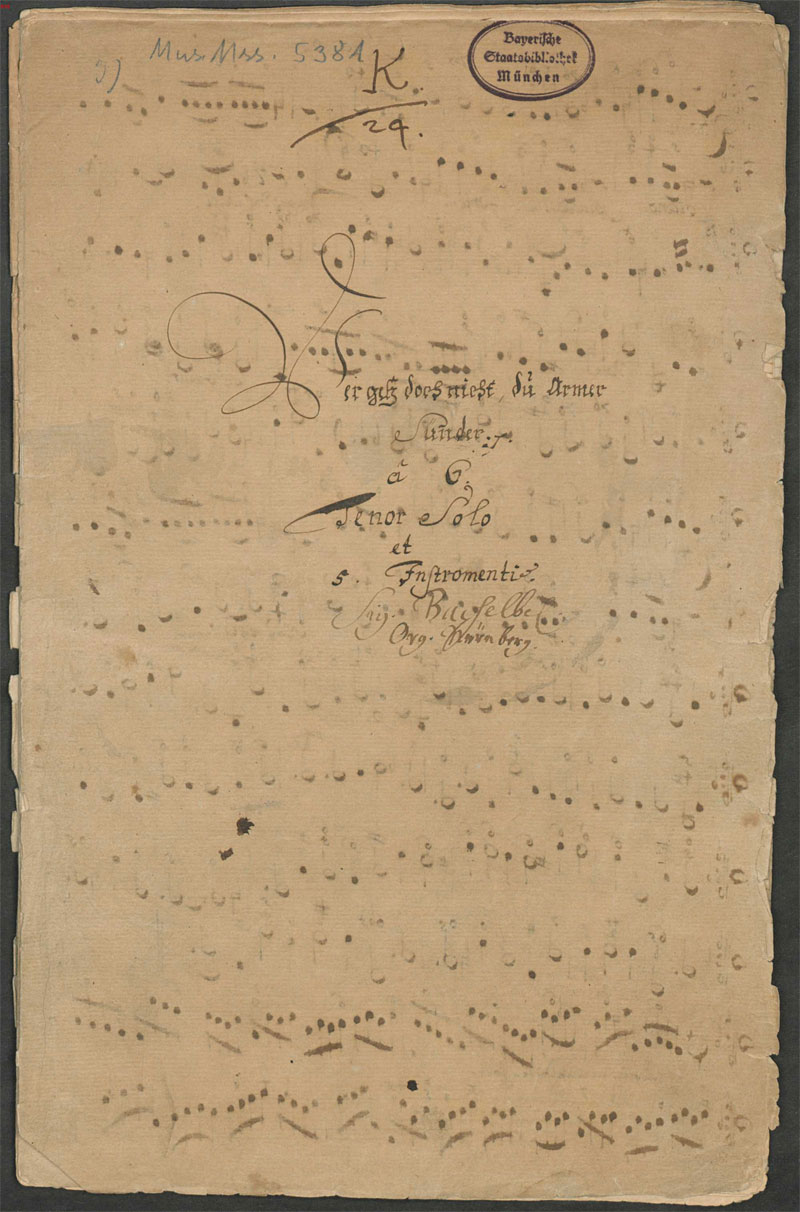 Mus. Mss. 5381
Bayerische
Staatsbibliothek
München
9)
K.
24.
Verzeg doch nicht, dŭ Armer
Sŭnder.
â 6.
Tenor Solo
et
5. Instromenti.
Sig. Bachelbel
Org. Nürnberg.